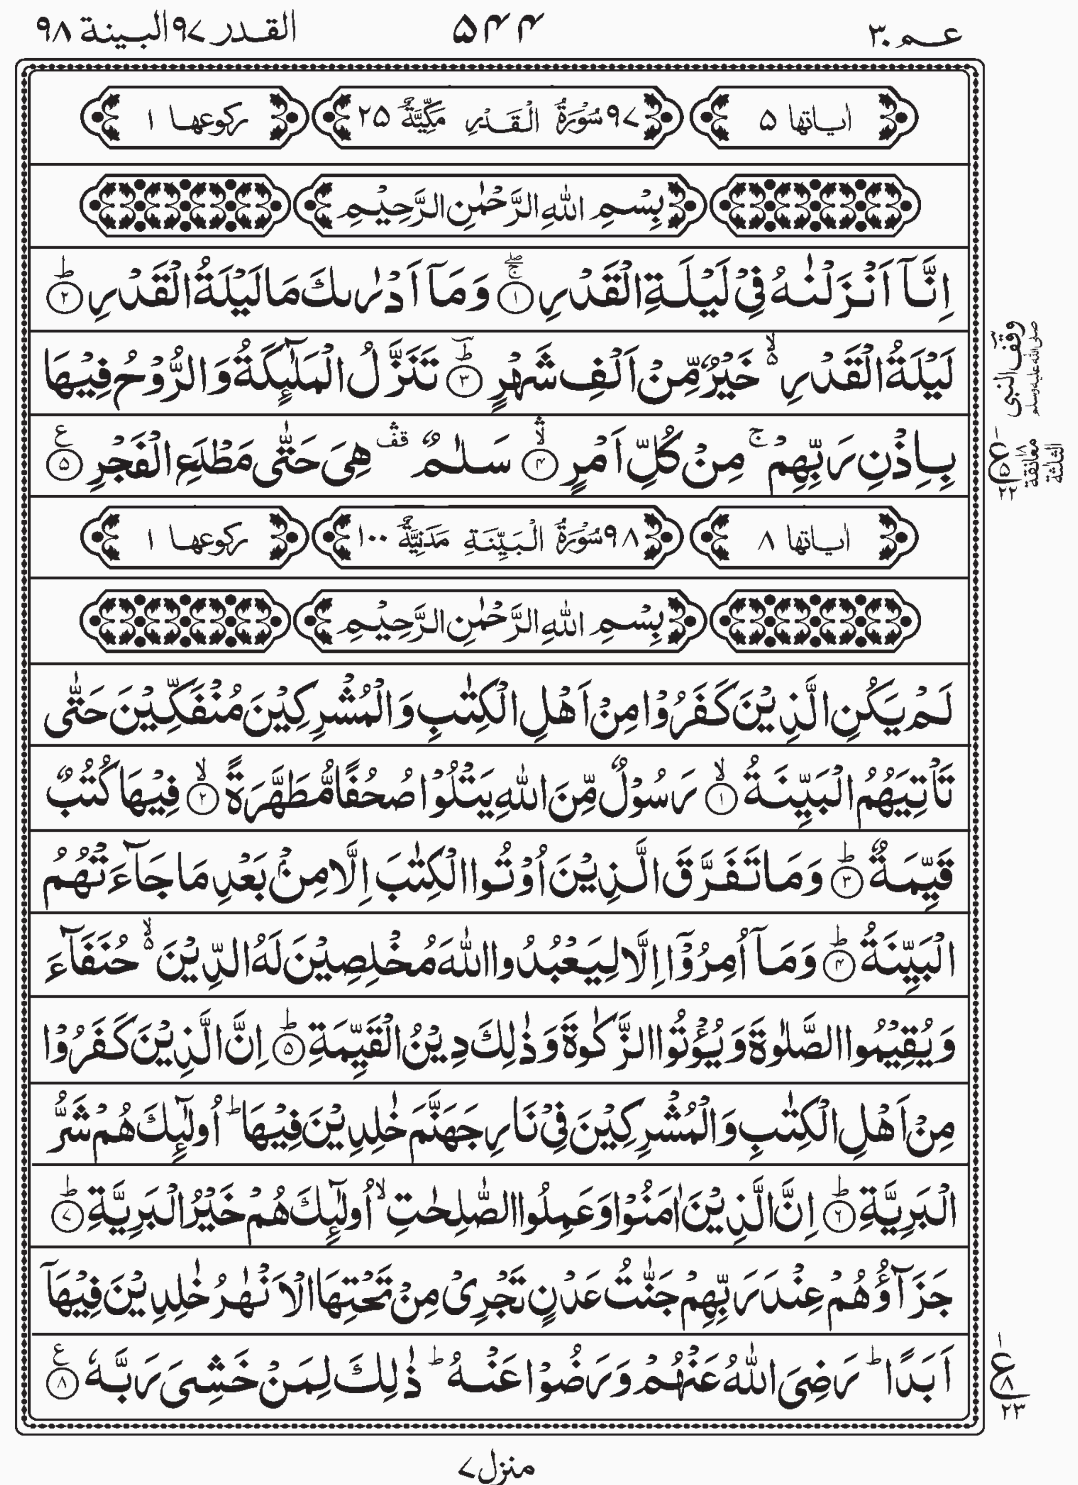 عم ٣٠ ٥٤٤ القدر ٩٧ البينة ٩٨
اٰياتها ٥ ٩٧ سُوْرَةُ الْقَدْرِ مَكِّيَّةٌ ٢٥ ركوعها ١
بِسْمِ اللّٰهِ الرَّحْمٰنِ الرَّحِيْمِ
اِنَّاۤ اَنْزَلْنٰهُ فِيْ لَيْلَةِ الْقَدْرِ ۚۖ ۝١ وَمَاۤ اَدْرٰىكَ مَا لَيْلَةُ الْقَدْرِ ؕ ۝٢
لَيْلَةُ الْقَدْرِ ۙ۬ خَيْرٌ مِّنْ اَلْفِ شَهْرٍ ؕؔ ۝٣ تَنَزَّلُ الْمَلٰٓئِكَةُ وَالرُّوْحُ فِيْهَا
بِاِذْنِ رَبِّهِمْ ۚ مِنْ كُلِّ اَمْرٍ ۙۛ ۝٤ سَلٰمٌ ۛ۫ هِيَ حَتّٰى مَطْلَعِ الْفَجْرِ ۝٥ ع
وقف النبى صلى الله عليه وسلم
معانقة ١٨ الثالثة
ع ٥ ٢٢
اٰياتها ٨ ٩٨ سُوْرَةُ الْبَيِّنَةِ مَدَنِيَّةٌ ١٠٠ ركوعها ١
بِسْمِ اللّٰهِ الرَّحْمٰنِ الرَّحِيْمِ
لَمْ يَكُنِ الَّذِيْنَ كَفَرُوْا مِنْ اَهْلِ الْكِتٰبِ وَالْمُشْرِكِيْنَ مُنْفَكِّيْنَ حَتّٰى
تَاْتِيَهُمُ الْبَيِّنَةُ ۙ ۝١ رَسُوْلٌ مِّنَ اللّٰهِ يَتْلُوْا صُحُفًا مُّطَهَّرَةً ۙ ۝٢ فِيْهَا كُتُبٌ
قَيِّمَةٌ ؕ ۝٣ وَمَا تَفَرَّقَ الَّذِيْنَ اُوْتُوا الْكِتٰبَ اِلَّا مِنْۢ بَعْدِ مَا جَآءَتْهُمُ
الْبَيِّنَةُ ؕ ۝٤ وَمَاۤ اُمِرُوْۤا اِلَّا لِيَعْبُدُوا اللّٰهَ مُخْلِصِيْنَ لَهُ الدِّيْنَ ۙ۬ حُنَفَآءَ
وَيُقِيْمُوا الصَّلٰوةَ وَيُؤْتُوا الزَّكٰوةَ وَذٰلِكَ دِيْنُ الْقَيِّمَةِ ؕ ۝٥ اِنَّ الَّذِيْنَ كَفَرُوْا
مِنْ اَهْلِ الْكِتٰبِ وَالْمُشْرِكِيْنَ فِيْ نَارِ جَهَنَّمَ خٰلِدِيْنَ فِيْهَا ؕ اُولٰٓئِكَ هُمْ شَرُّ
الْبَرِيَّةِ ؕ ۝٦ اِنَّ الَّذِيْنَ اٰمَنُوْا وَعَمِلُوا الصّٰلِحٰتِ ۙ اُولٰٓئِكَ هُمْ خَيْرُ الْبَرِيَّةِ ؕ ۝٧
جَزَآؤُهُمْ عِنْدَ رَبِّهِمْ جَنّٰتُ عَدْنٍ تَجْرِيْ مِنْ تَحْتِهَا الْاَنْهٰرُ خٰلِدِيْنَ فِيْهَاۤ
اَبَدًا ؕ رَضِيَ اللّٰهُ عَنْهُمْ وَرَضُوْا عَنْهُ ؕ ذٰلِكَ لِمَنْ خَشِيَ رَبَّهٗ ۝٨ ع
ع ٨ ٢٣
منزل ٧